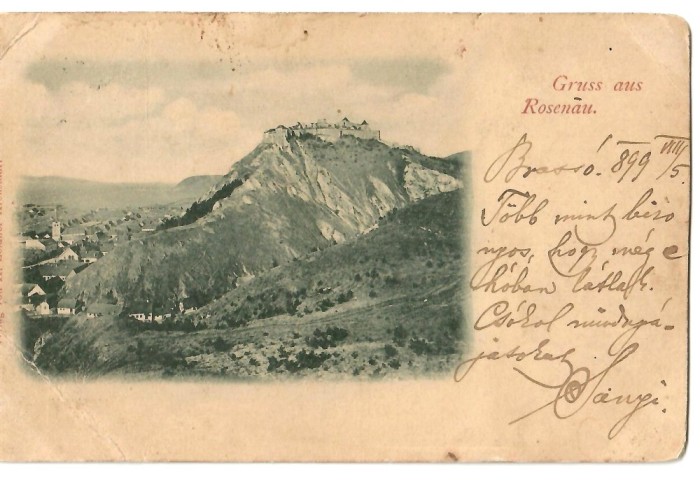 Gruss aus
Rosenau.
Brassó. 899 VIII/5.
Több mint bizo
nyos, hogy még e
hóban látlak.
Csókol
játokat
Sanyi.